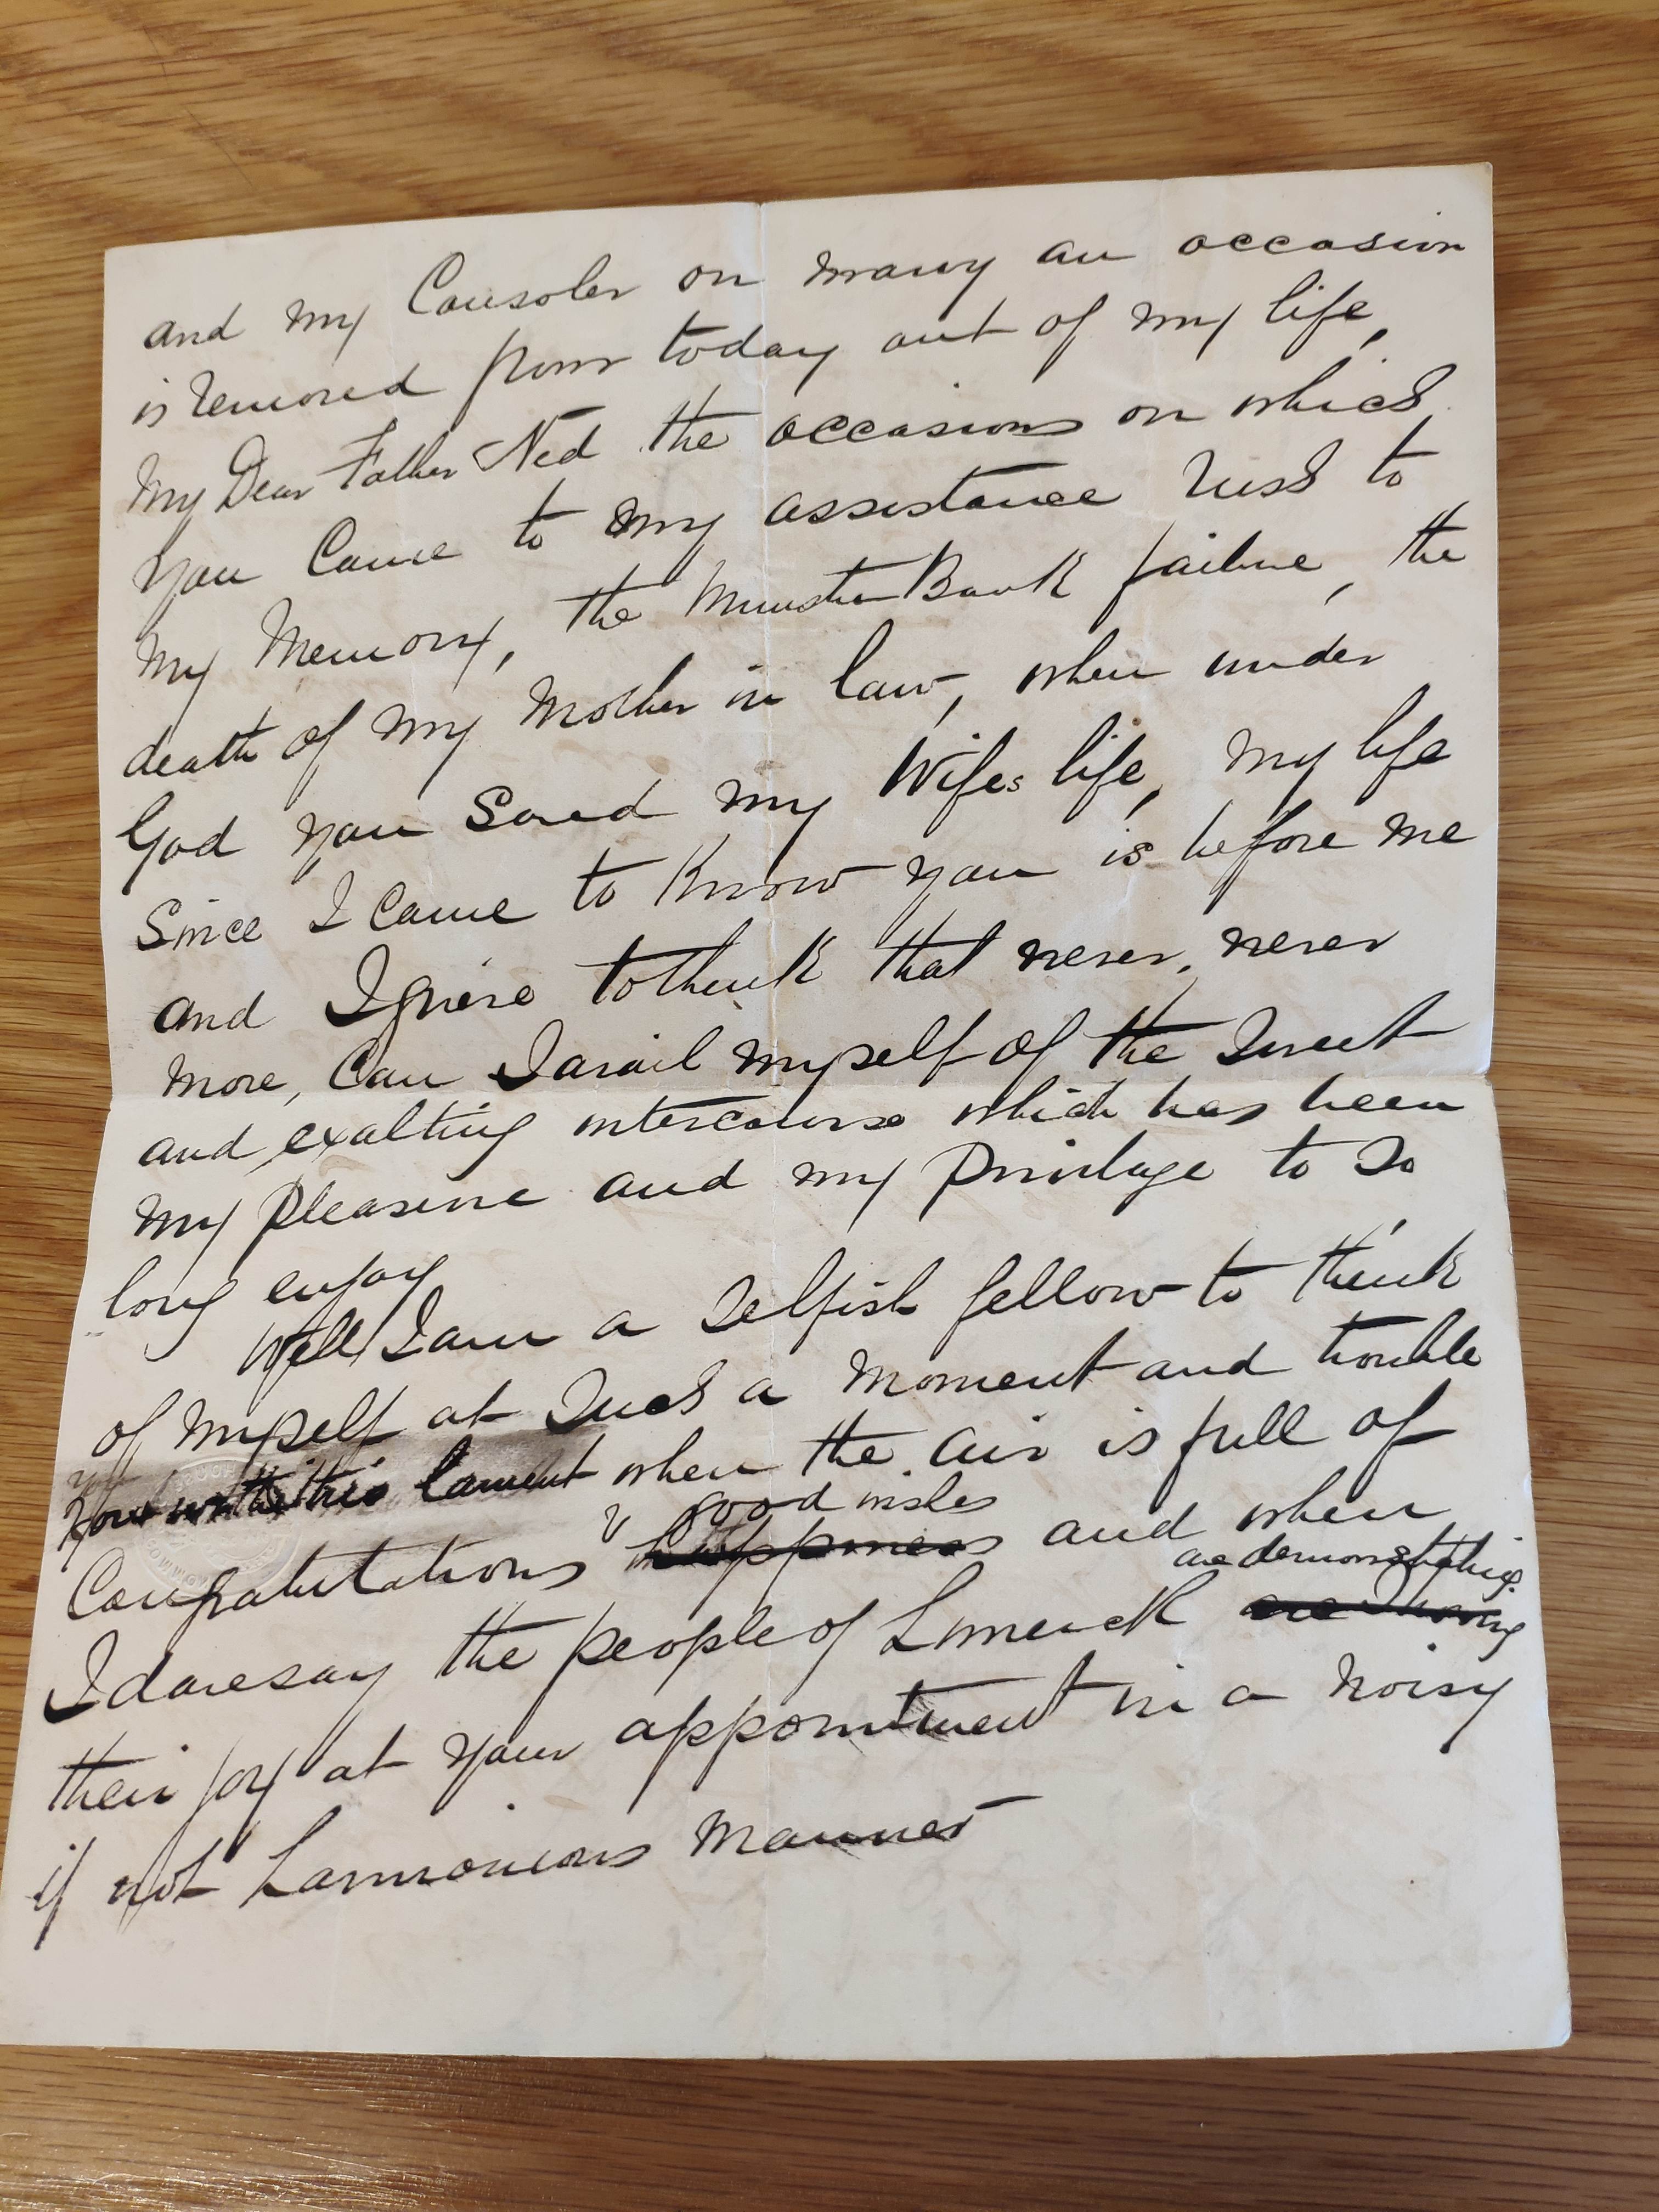 and my Consoler on many an occasion
is removed from today out of my life,
My Dear Father Ned the occasions on which
you came to my assistance rush to
my memory, the Munster Bank failure, the
death of my Mother in law, when under
God you saved my Wifes life, my life
Since I came to Know you is before me
and I grieve to think that never, never
more, can I avail myself of the Sweet
and exalting intercourse which has been
my pleasure and my privilege to so
long enjoy
Well I am a Selfish fellow to think
of myself at Such a moment and trouble
you with this lament when the air is full of
good wishes
Congratulations happiness and when
are demonstrating
I daresay the people of Limerick are
their joy at your appointment in a noisy
if not harmonious manner